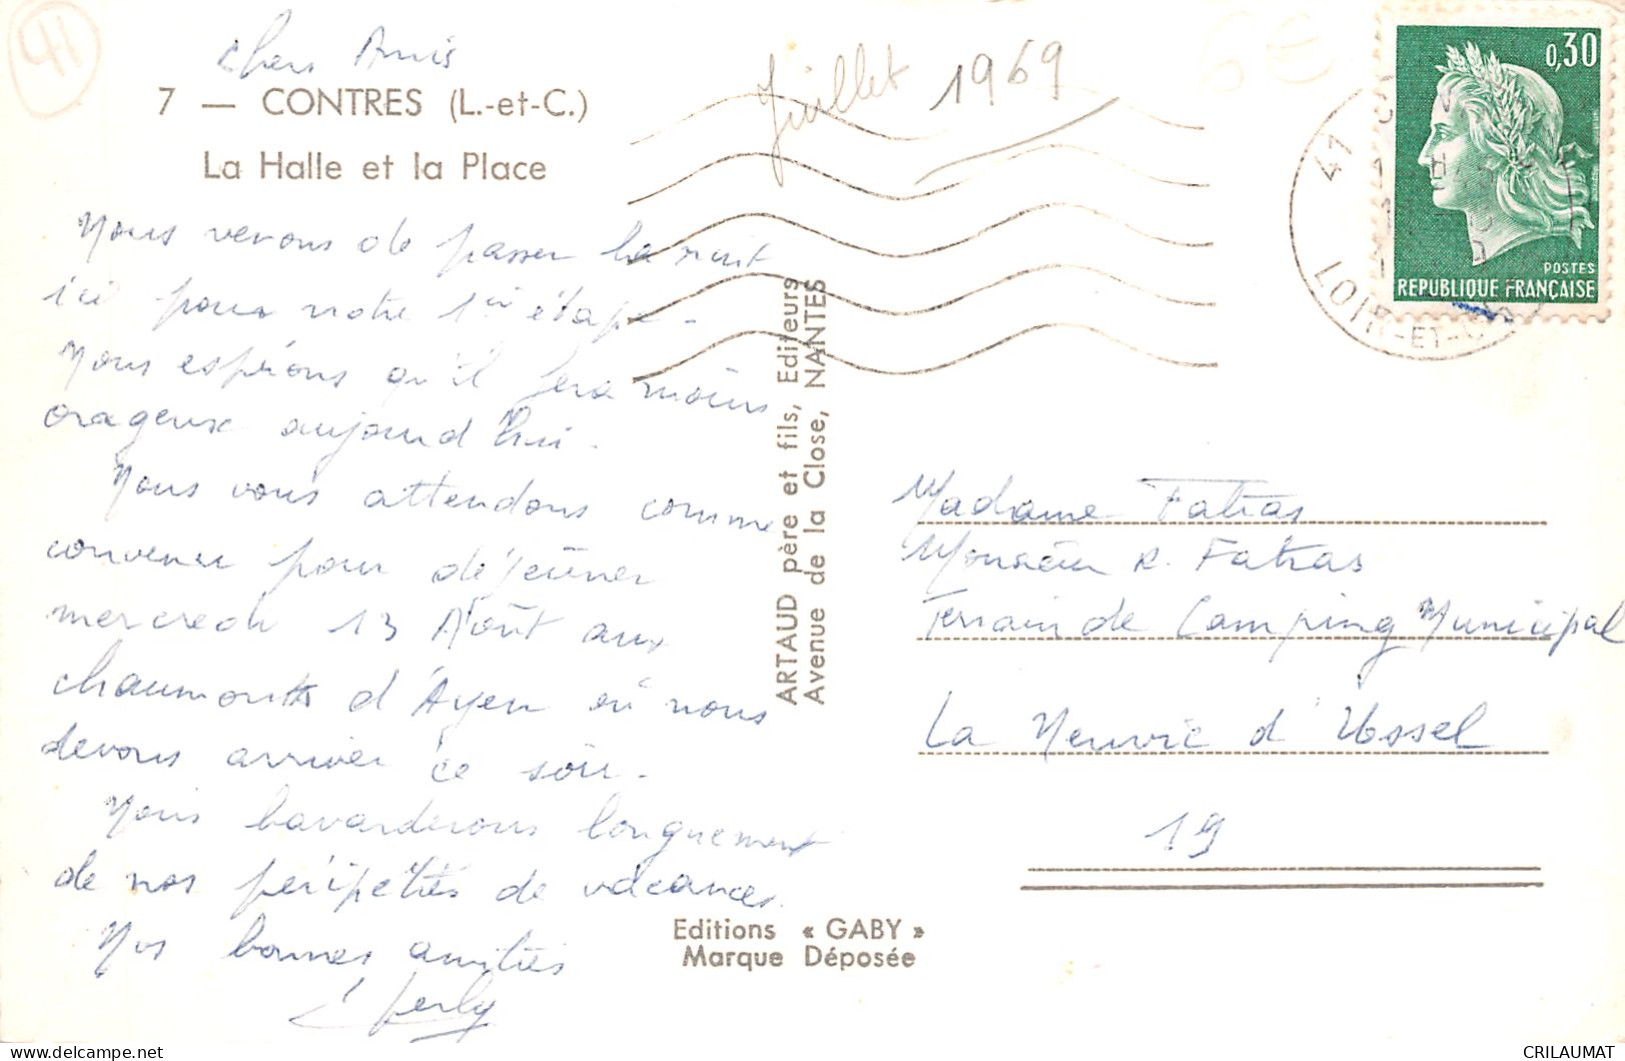 41
Chers Amis
7 — CONTRES (L.-et-C.)
La Halle et la Place
Juillet 1969
6€
0,30
POSTES
REPUBLIQUE FRANÇAISE
41
LOIR-ET-
Nous venons de passer la nuit
ici pour notre 1ère étape.
Nous espérons qu'il fera moins
orageux aujourd'hui.
Nous vous attendons comme
convenu pour déjeuner
mercredi 13 Août aux
chaumonts d'Ayen où nous
devons arriver ce soir.
Nous bavarderons longuement
de nos péripéties de vacances.
Nos bonnes amitiés
ARTAUD père et fils, Editeurs
Avenue de la Close, NANTES
Madame Fatras
Monsieur R. Fatras
Terrain de Camping Municipal
La Neuvic d'Ussel
19
Editions « GABY »
Marque Déposée
delcampe.net
CRILAUMAT